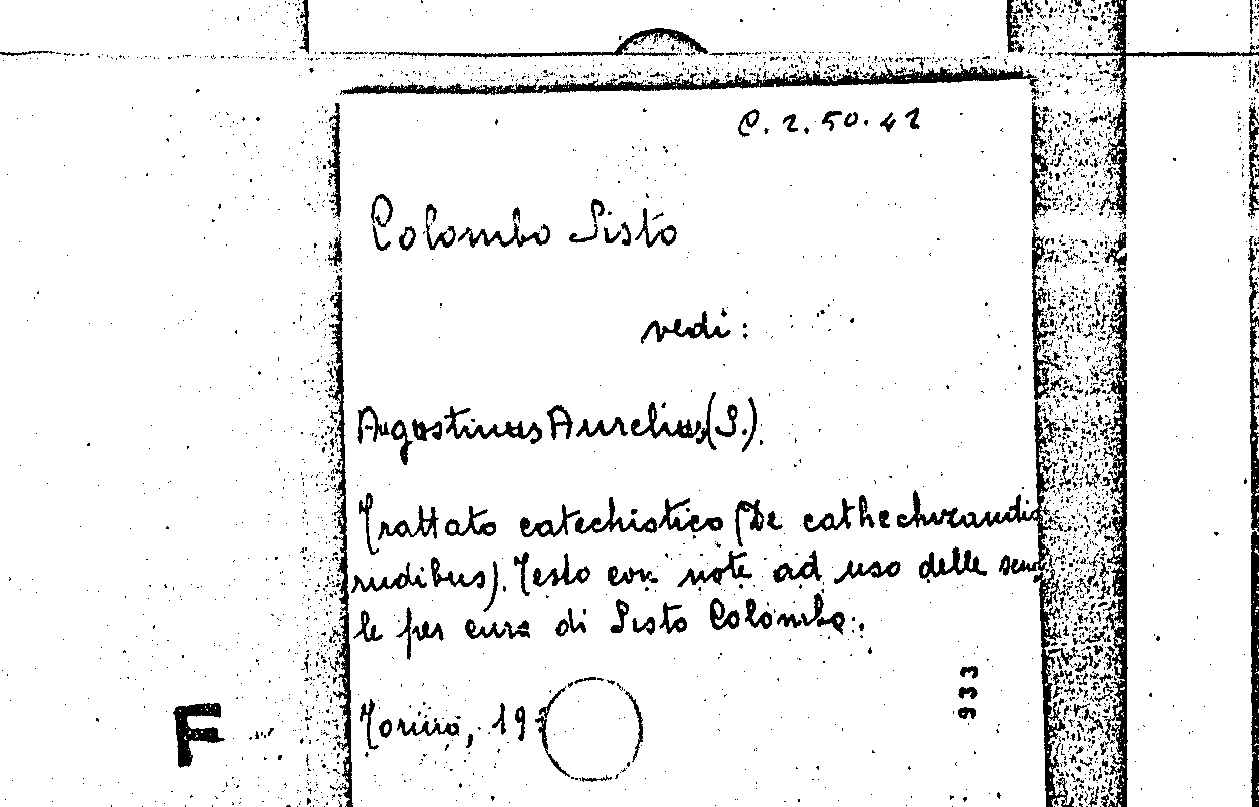 C. 2. 50. 42
Colombo Sisto
vedi:
Agostinus Aurelius (S.).
Trattato catechistico (De cathechizandis
rudibus). Testo con note ad uso delle scuo
le per cura di Sisto Colombo.
Torino, 19
933
F